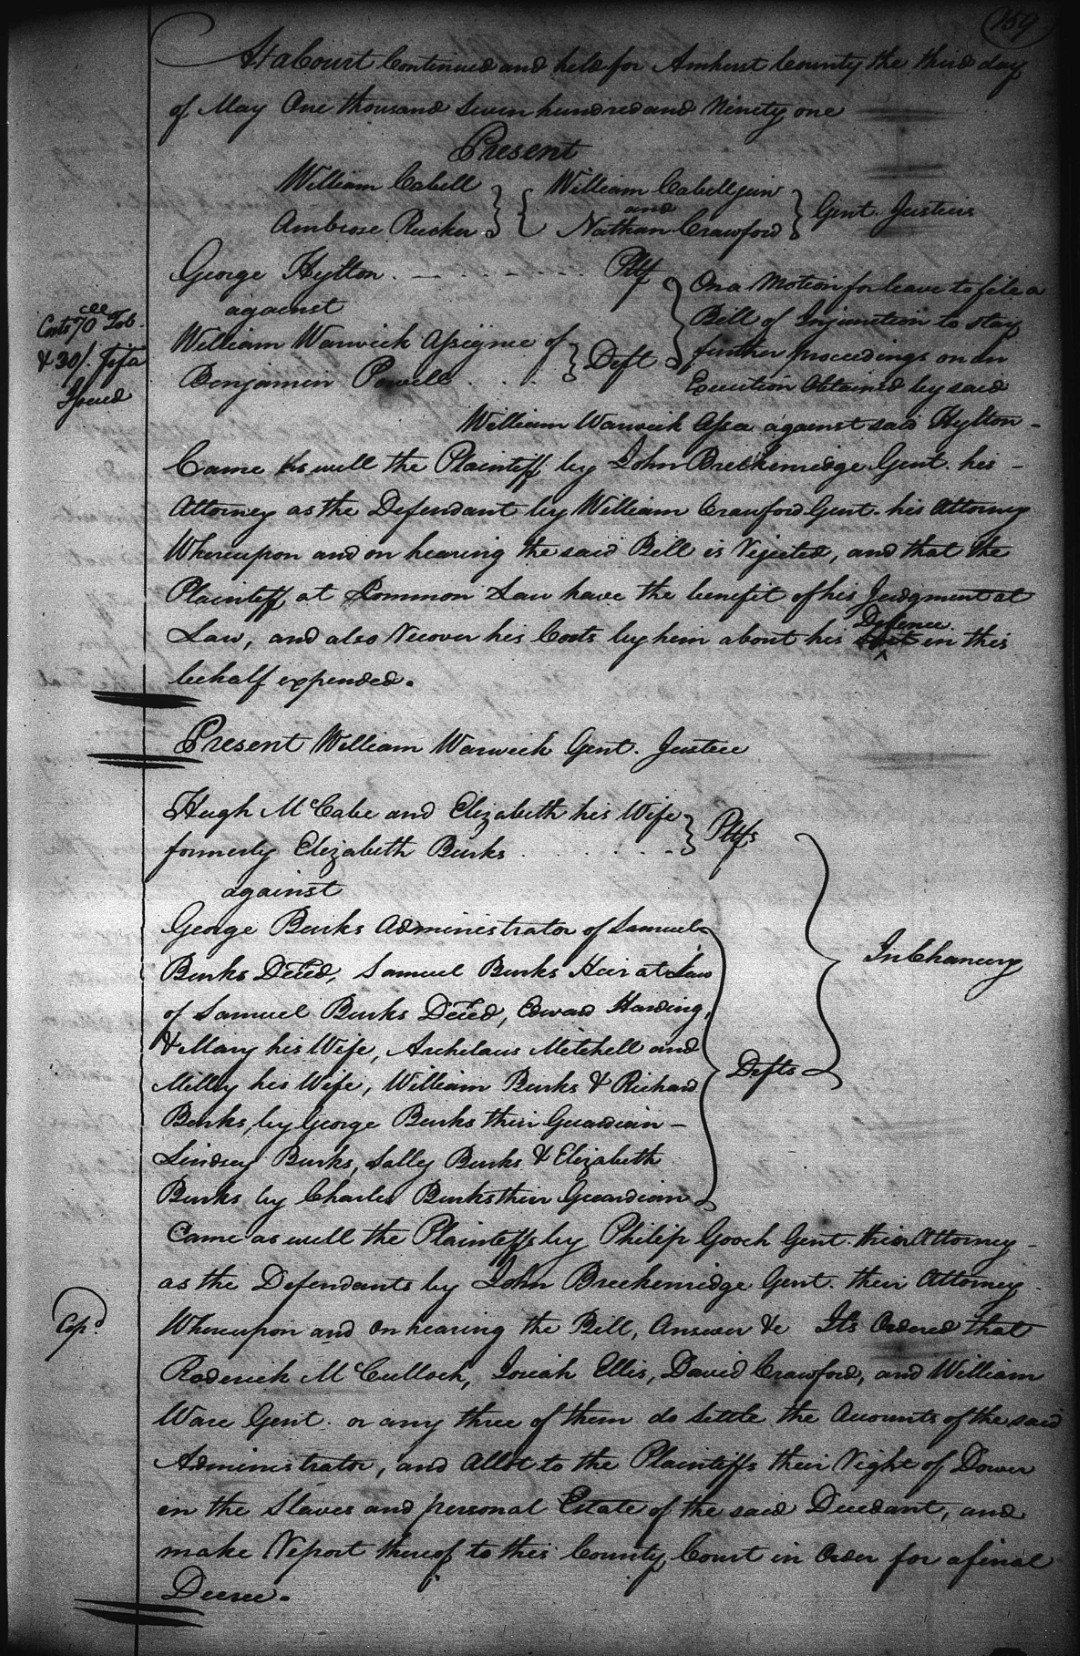 159
At a Court Continued and held for Amherst County the third day
of May One thousand Seven hundred and Ninety one
Present
William Cabell } { William Cabell jun } Gent. Justices
and
Ambrose Rucker } { Nathan Crawford }
George Hylton . - - - - - - - Pltf
against
William Warwick Assignee of } Deft
Benjamin Powell . . . .
On a Motion for leave to file a
Bill of Injunction to stay
further proceedings on an
Execution Obtained by said
William Warwick Assee against said Hylton -
Costs 70 lbs Tob.
& 30/. Fifa
Issued
Came as well the Plaintiff by John Breckenridge Gent. his -
Attorney as the Defendant by William Crawford Gent. his Attorney
Whereupon and on hearing the said Bill is Rejected, and that the
Plaintiff at Common Law have the benefit of his Judgment at
Law, and also Recover his Costs by him about his Defence in this
behalf expended.
Present William Warwick Gent. Justice
Hugh McCabe and Elizabeth his Wife } Pltfs
formerly Elizabeth Burks . . . . . .
against
George Burks Administrator of Samuel
Burks Deced, Samuel Burks Heir at Law
of Samuel Burks Deced, Edward Harding,
& Mary his Wife, Archilaus Mitchell and
Milly his Wife, William Burks & Richard
Burks, by George Burks their Guardian -
Lindsey Burks, Sally Burks & Elizabeth
Burks by Charles Burks their Guardian
Defts
In Chancery
Came as well the Plaintiffs by Philip Gooch Gent. their Attorney -
as the Defendants by John Breckenridge Gent. their Attorney
Whereupon and on hearing the Bill, Answer &c Its Ordered that
Copd
Roderick McCulloch, Josiah Ellis, David Crawford, and William
Ware Gent. or any three of them do Settle the Accounts of the said
Administrator, and Allot to the Plaintiffs their Right of Dower
in the Slaves and personal Estate of the said Decedant, and
make Report thereof to this County Court in Order for a final
Decree.